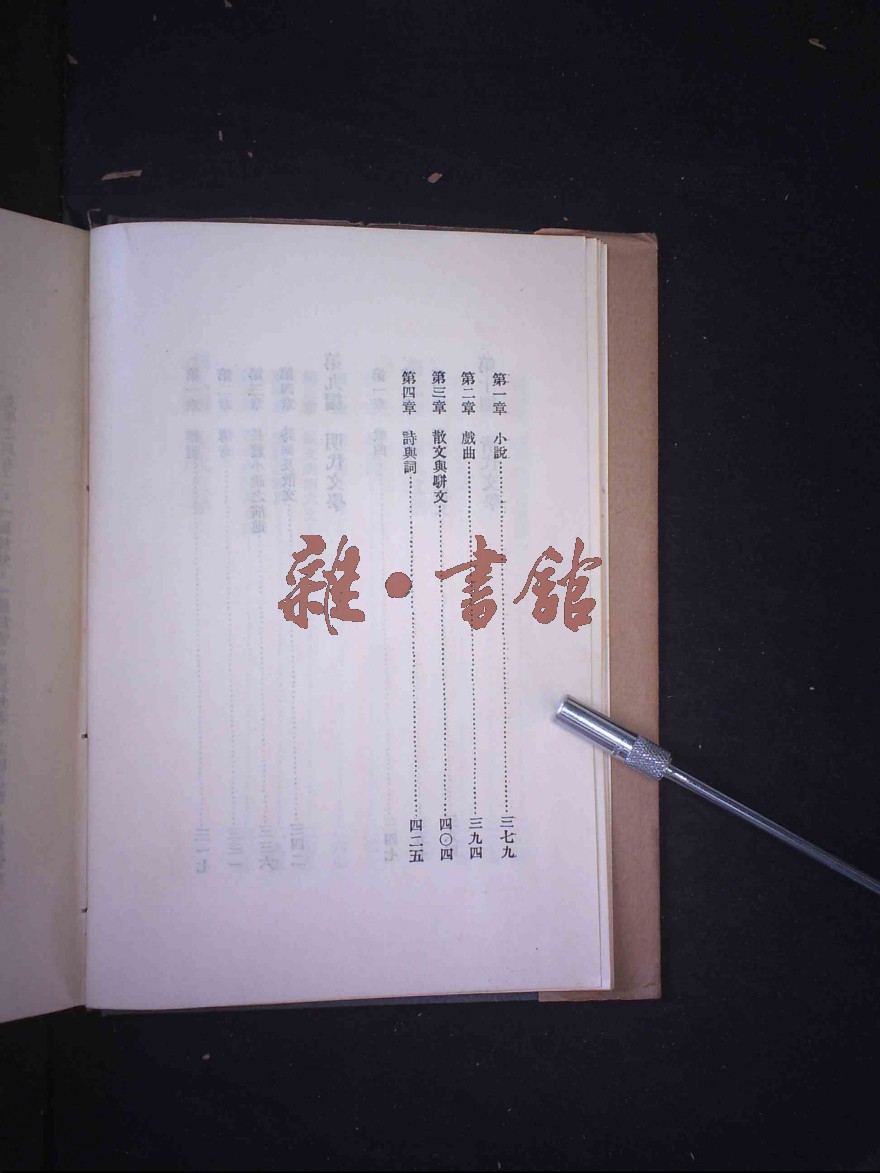 第一章 小說……三七九
第二章 戲曲……三九四
第三章 散文與駢文……四〇四
第四章 詩與詞……四二五
雜·書館